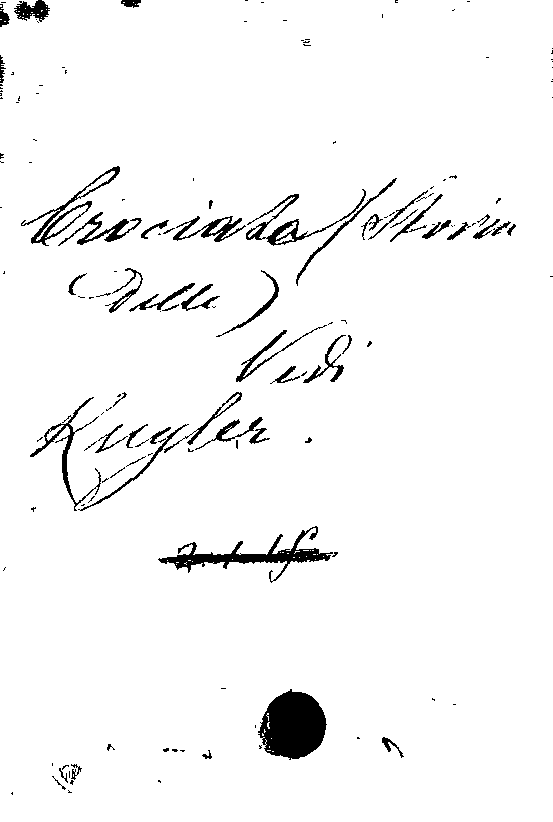 Crociata (Storia
delle)
Vedi
Kugler.